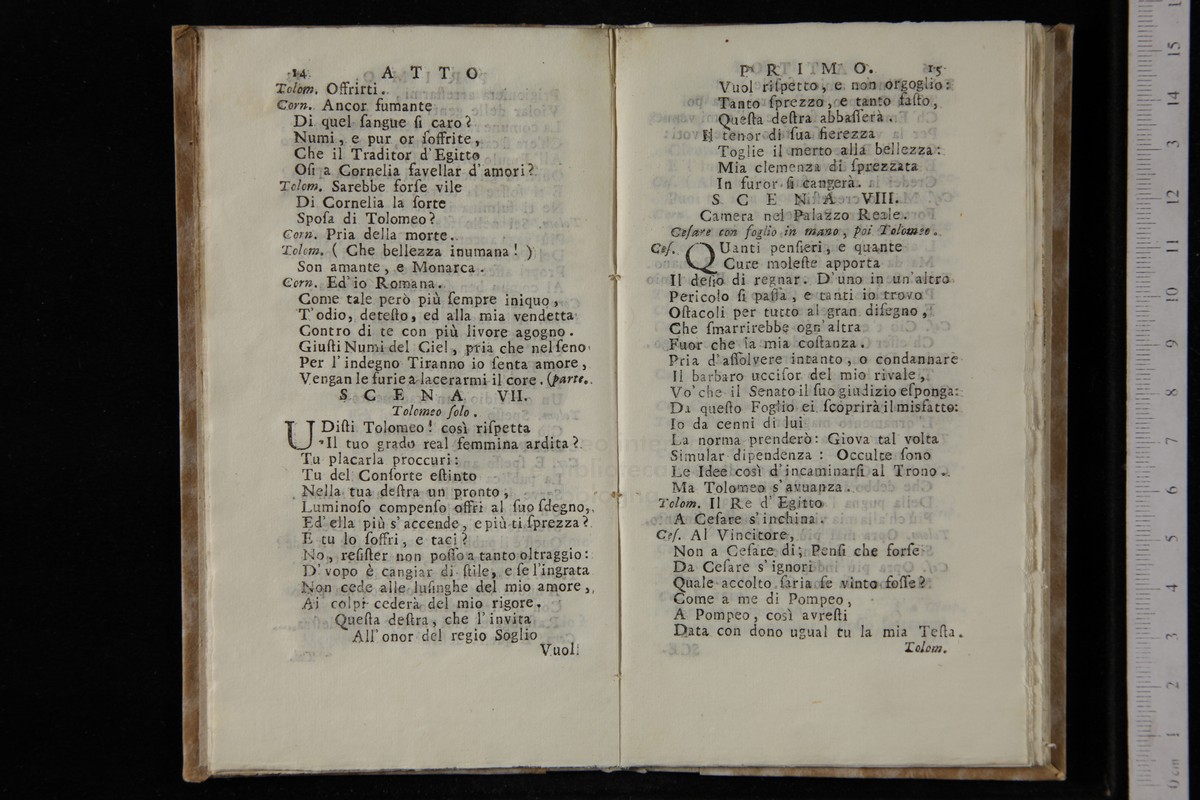 14 A T T O
Tolom. Offrirti.
Corn. Ancor fumante
Di quel ſangue ſi caro?
Numi, e pur or ſoffrite,
Che il Traditor d'Egitto
Oſi a Cornelia favellar d'amori?
Tolom. Sarebbe forſe vile
Di Cornelia la ſorte
Spoſa di Tolomeo?
Corn. Pria della morte.
Tolom. ( Che bellezza inumana! )
Son amante, e Monarca.
Corn. Ed' io Romana.
Come tale però più ſempre iniquo,
T'odio, deteſto, ed alla mia vendetta
Contro di te con più livore agogno.
Giuſti Numi del Ciel, pria che nel ſeno
Per l'indegno Tiranno io ſenta amore,
Vengan le furie a lacerarmi il core. (parte.
S C E N A VII.
Tolomeo ſolo.
UDiſti Tolomeo! così riſpetta
Il tuo grado real femmina ardita?
Tu placarla proccuri:
Tu del Conſorte eſtinto
Nella tua deſtra un pronto,
Luminoſo compenſo offri al ſuo ſdegno,
Ed'ella più s'accende, e più ti ſprezza?
E tu lo ſoffri, e taci?
No, reſiſter non poſſo a tanto oltraggio:
D'vopo è cangiar di ſtile, e ſe l'ingrata
Non cede alle luſinghe del mio amore,
Ai colpi cederà del mio rigore.
Queſta deſtra, che l'invita
All'onor del regio Soglio
Vuoll
P R I M O. 15
Vuol riſpetto, e non orgoglio:
Tanto ſprezzo, e tanto faſto,
Queſta deſtra abbaſſerà.
Il tenor di ſua fierezza
Toglie il merto alla bellezza:
Mia clemenza di ſprezzata
In furor ſi cangerà.
S C E N A VIII.
Camera nel Palazzo Reale.
Ceſare con foglio in mano, poi Tolomeo.
Ceſ. QUanti penſieri, e quante
Cure moleſte apporta
Il deſio di regnar. D'uno in un'altro
Pericolo ſi paſſa, e tanti io trovo
Oſtacoli per tutto al gran diſegno,
Che ſmarrirebbe ogn'altra
Fuor che la mia coſtanza.
Pria d'aſſolvere intanto, o condannare
Il barbaro ucciſor del mio rivale,
Vo'che il Senato il ſuo giudizio eſponga:
Da queſto Foglio ei ſcoprirà il misfatto:
Io da cenni di lui
La norma prenderò: Giova tal volta
Simular dipendenza: Occulte ſono
Le Idee così d'incaminarſi al Trono.
Ma Tolomeo s'avuanza.
Tolom. Il Re d'Egitto
A Ceſare s'inchina.
Ceſ. Al Vincitore,
Non a Ceſare di; Penſi che forſe
Da Ceſare s'ignori
Quale accolto ſaria ſe vinto foſſe?
Come a me di Pompeo,
A Pompeo, così avreſti
Data con dono ugual tu la mia Teſta.
Tolom.
0 cm 1 2 3 4 5 6 7 8 9 10 11 12 13 14 15